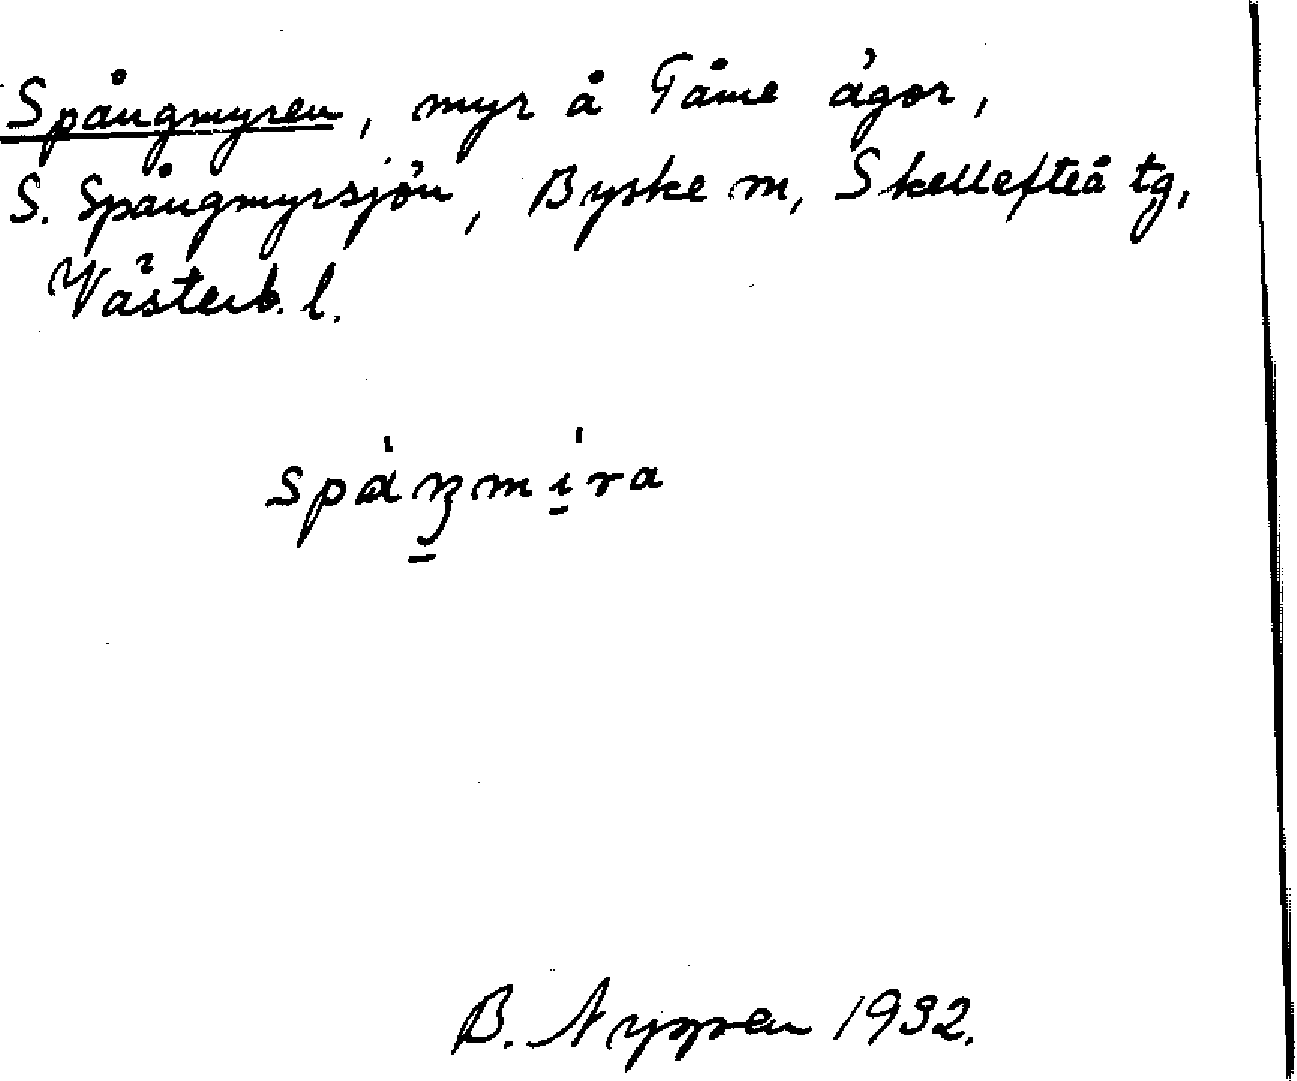 Spångmyren, myr å Tåme ägor,
S. Spångmyrsjön, Byske sn, Skellefteå tg,
Västerb. l.
B. Nygren 1932.